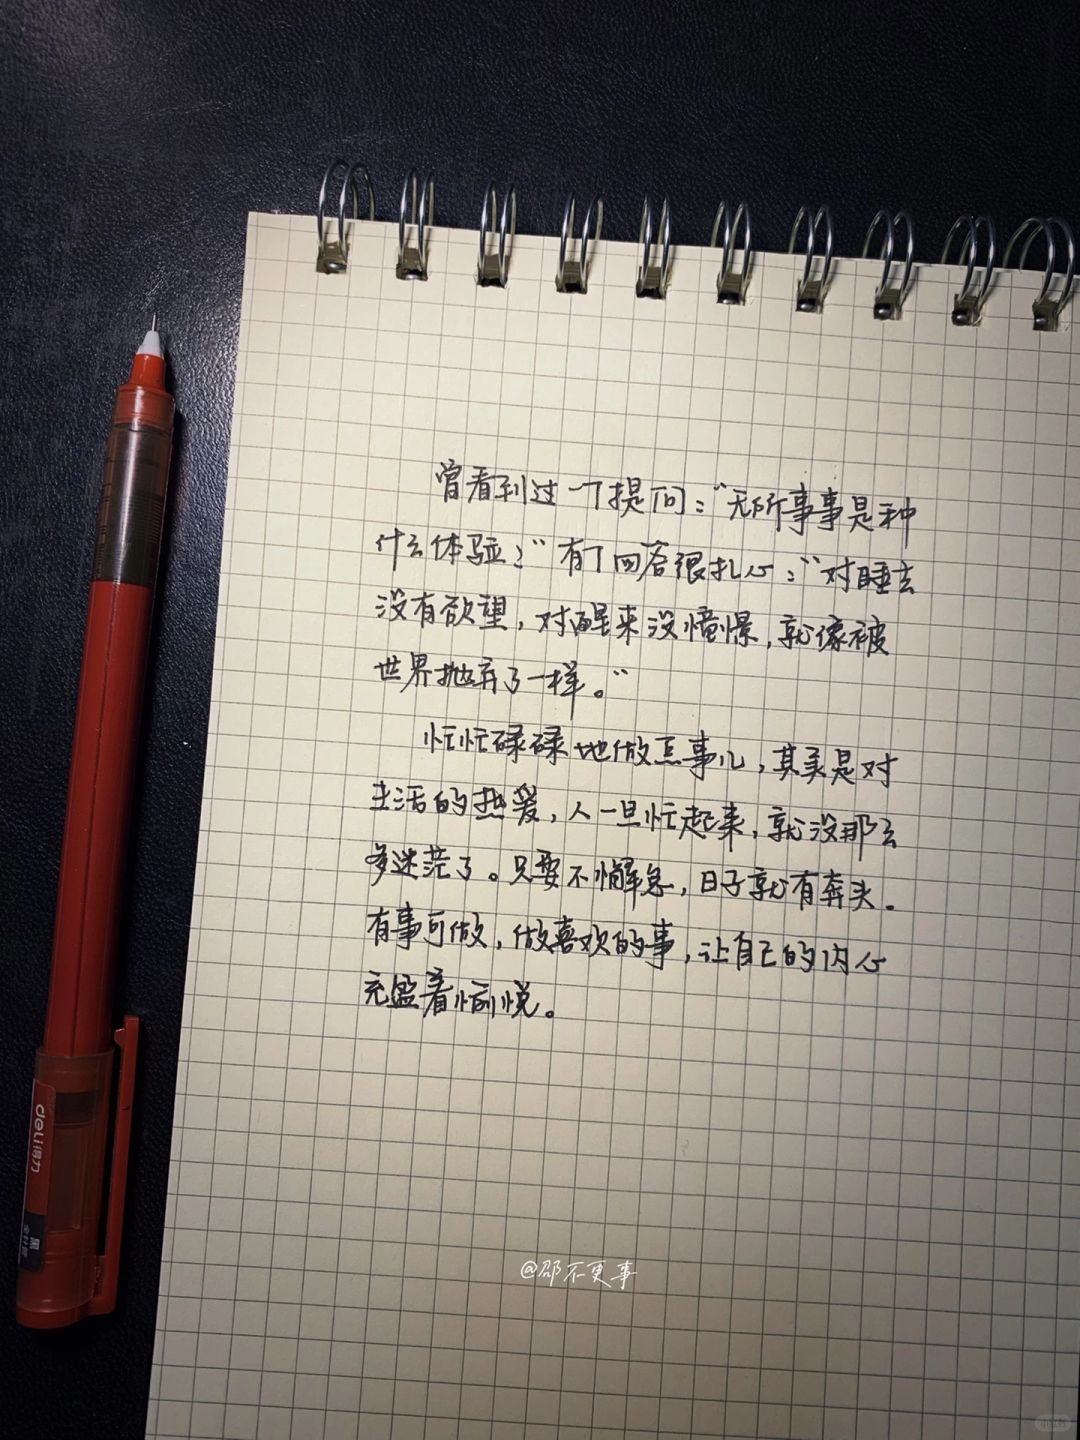 曾看到过一个提问：“无所事事是种
什么体验？”有个回答很扎心：“对睡去
没有欲望，对醒来没憧憬，就像被
世界抛弃了一样。”
忙忙碌碌地做点事儿，其实是对
生活的热爱，人一旦忙起来，就没那么
多迷茫了。只要不懈怠，日子就有奔头。
有事可做，做喜欢的事，让自己的内心
充盈着愉悦。
@邵不更事
deli得力